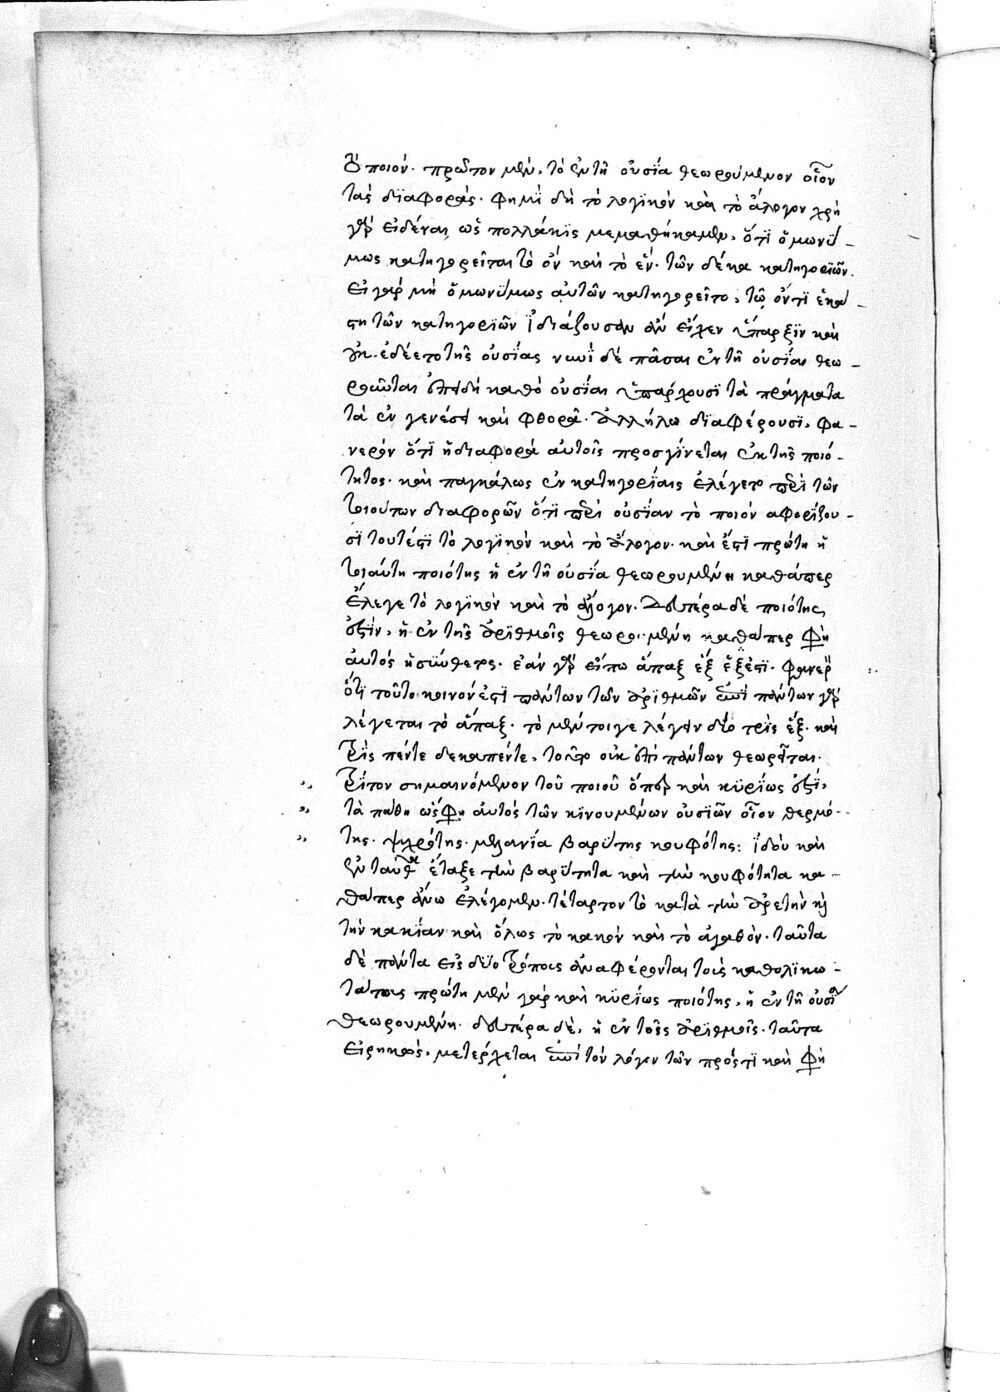 ὁ ποιόν. πρῶτον μὲν, τὸ ἐν τῆ οὐσΐα θεωρούμενον οἷον
τὰς δϊαφοράς. φημὶ δὴ τὸ λογϊκὸν καὶ τὸ ἄλογον χρὴ
γὰρ εἰδέναι, ὡς πολλάκϊς μεμαθήκαμεν, ὅτϊ ὁμωνΰ-
μως κατηγορεῖται τὸ ὂν καὶ τὸ ἕν. τῶν δέκα κατηγορϊῶν.
εἰ γὰρ μὴ ὁμωνΰμως αὐτῶν κατηγορεῖτο, τῷ ὄντϊ ἑκά-
στη τῶν κατηγορϊῶν ἰδιάζουσαν ἂν εἶχεν ὕπαρξϊν καὶ
ἐδέετο τῆς οὐσΐας νυνὶ δὲ πᾶσαι ἐν τῆ οὐσΐαι θεω-
ροῦνται ἐπειδὴ καθὸ οὐσΐαι ὑπάρχουσϊ τὰ πράγματα
τὰ ἐν γενέσει καὶ φθορᾶ. ἀλλήλω δϊαφέρουσϊ, φα-
νερὸν ὅτϊ ἡ διαφορὰ αὐτοῖς προσγΐνεται ἐκ τῆς ποιό-
τητος. καὶ παγκάλως ἐν κατηγορΐαις ἐλέγετο περὶ τῶν
τοιούτων διαφορῶν ὅτϊ περὶ οὐσΐαν τὸ ποιὸν αφορίζου-
σϊ τουτέστϊ τὸ λογϊκὸν καὶ τὸ ἄλογον. καὶ ἔστϊ πρώτη ἡ
τοιαύτη ποιότης ἡ ἐν τῆ οὐσΐα θεωρουμένη καθάπερ
ἔλεγε τὸ λογϊκὸν καὶ τὸ ἄλογον. δευτέρα δὲ ποιότης
ἐστϊν, ἡ ἐν τοῖς ἀρϊθμοῖς θεωρουμένη καθάπερ φη
αὐτὸς ἡ σΰνθετος. ἐὰν γὰρ εἴπω ἅπαξ ἓξ ἓξ ἐστϊ. φανερὸν
ὅτϊ τοῦτο κοινόν ἐστϊ πάντων τῶν ἀρϊθμῶν ἐπὶ πάντων γὰρ
λέγεται τὸ ἅπαξ. τὸ μέντοιγε λέγειν δὶς τρὶς ἓξ. καὶ
τρὶς πέντε δεκαπέντε, τοῦτο οὐκ ἐπὶ πάντων θεωρεῖται.
τρΐτον σημαινόμενον τοῦ ποιοῦ ὅπερ καὶ κυρΐως ἐστϊ,
τὰ πάθη ὥς φη αὐτὸς τῶν κϊνουμένων οὐσϊῶν οἷον θερμό-
της. ψυχρότης. μελανΐα βαρΰτης κουφότης: ἰδοὺ καὶ
ἐνταῦθα ἔταξε τὴν βαρΰτητα καὶ τὴν κουφότητα κα-
θάπερ ἄνω ἐλέγομεν. τέταρτον τὸ κατὰ τὴν ἀρετὴν καὶ
τὴν κακΐαν καὶ ὅλως τὸ κακὸν καὶ τὸ ἀγαθόν. ταῦτα
δὲ πάντα εἰς δΰο τρόπους ἀναφέρονται τοὺς καθολϊκω-
τάτους πρώτη μὲν γὰρ καὶ κυρΐως ποιότης, ἡ ἐν τῆ οὐσΐα
θεωρουμένη. δευτέρα δὲ, ἡ ἐν τοῖς ἀρϊθμοῖς. ταῦτα
εἰρηκὼς, μετέρχεται ἐπὶ τὸν λόγον τῶν πρός τϊ καὶ φη